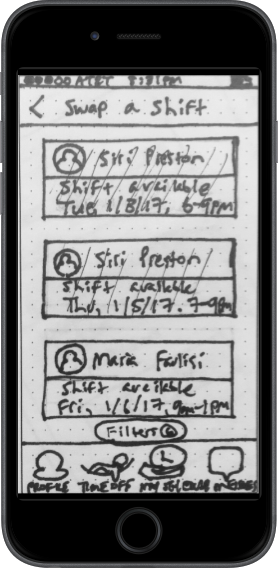 AT&T 8:31PM
< Swap a Shift
Siri Preston
Shift available
Tue, 1/3/17, 6-9pm
Siri Preston
Shift available
Thu, 1/5/17, 7-9pm
Maria
Shift available
Fri, 1/6/17, 9am-1pm
Filters
PROFILE TIME OFF MY